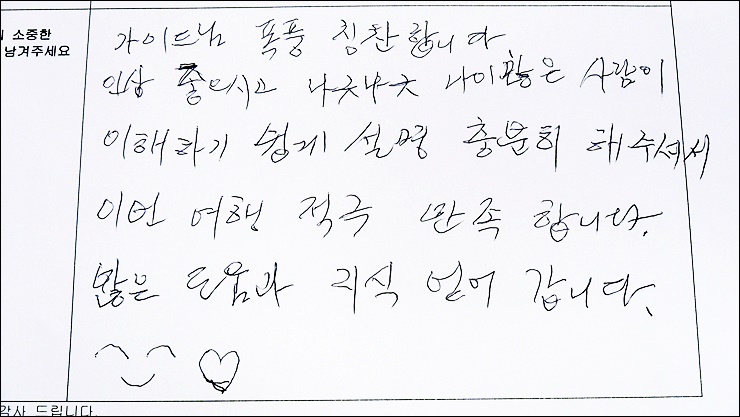 소중한
남겨주세요
가이드님 폭풍 칭찬합니다
인상 좋으시고 나긋나긋 나이많은 사람이
이해하기 쉽게 설명 충분히 해주셔서
이번 여행 적극 만족 합니다.
많은 도움과 지식 얻어 갑니다.
감사 드립니다.